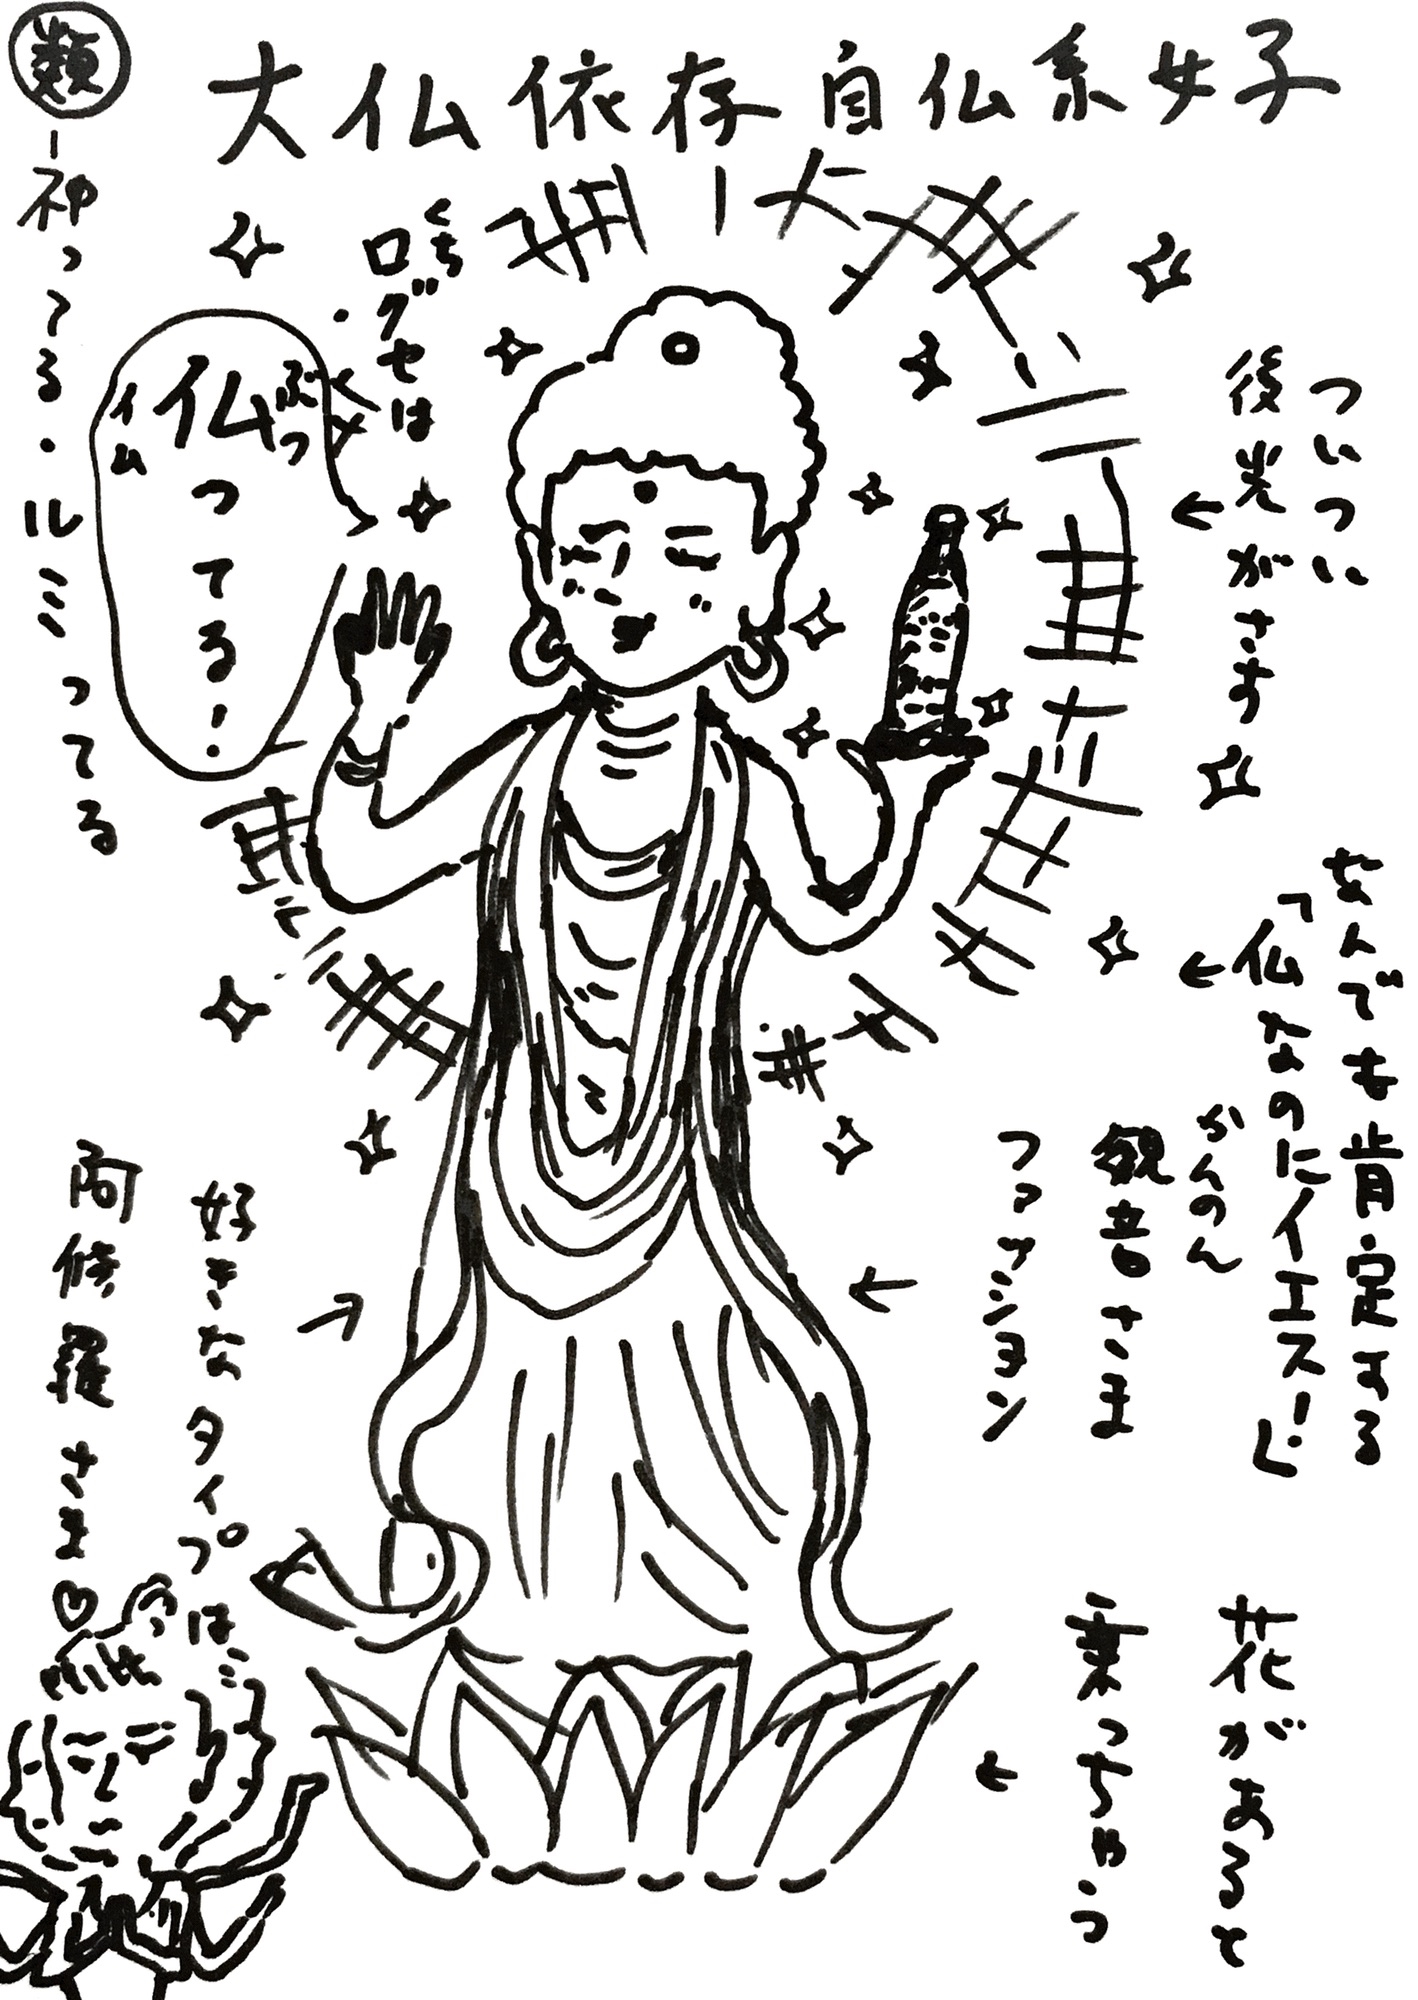 大仏依存自仏系女子
ついつい
後光がさす
なんでも肯定する
「仏なのにイエス!」
かんのん
観音さま
ファッション
花があると
乗っちゃう
くち
口グセは
ぶつ
仏ってる!
イム
類
神ってる・ルミってる
好きなタイプは…
阿修羅さま♡